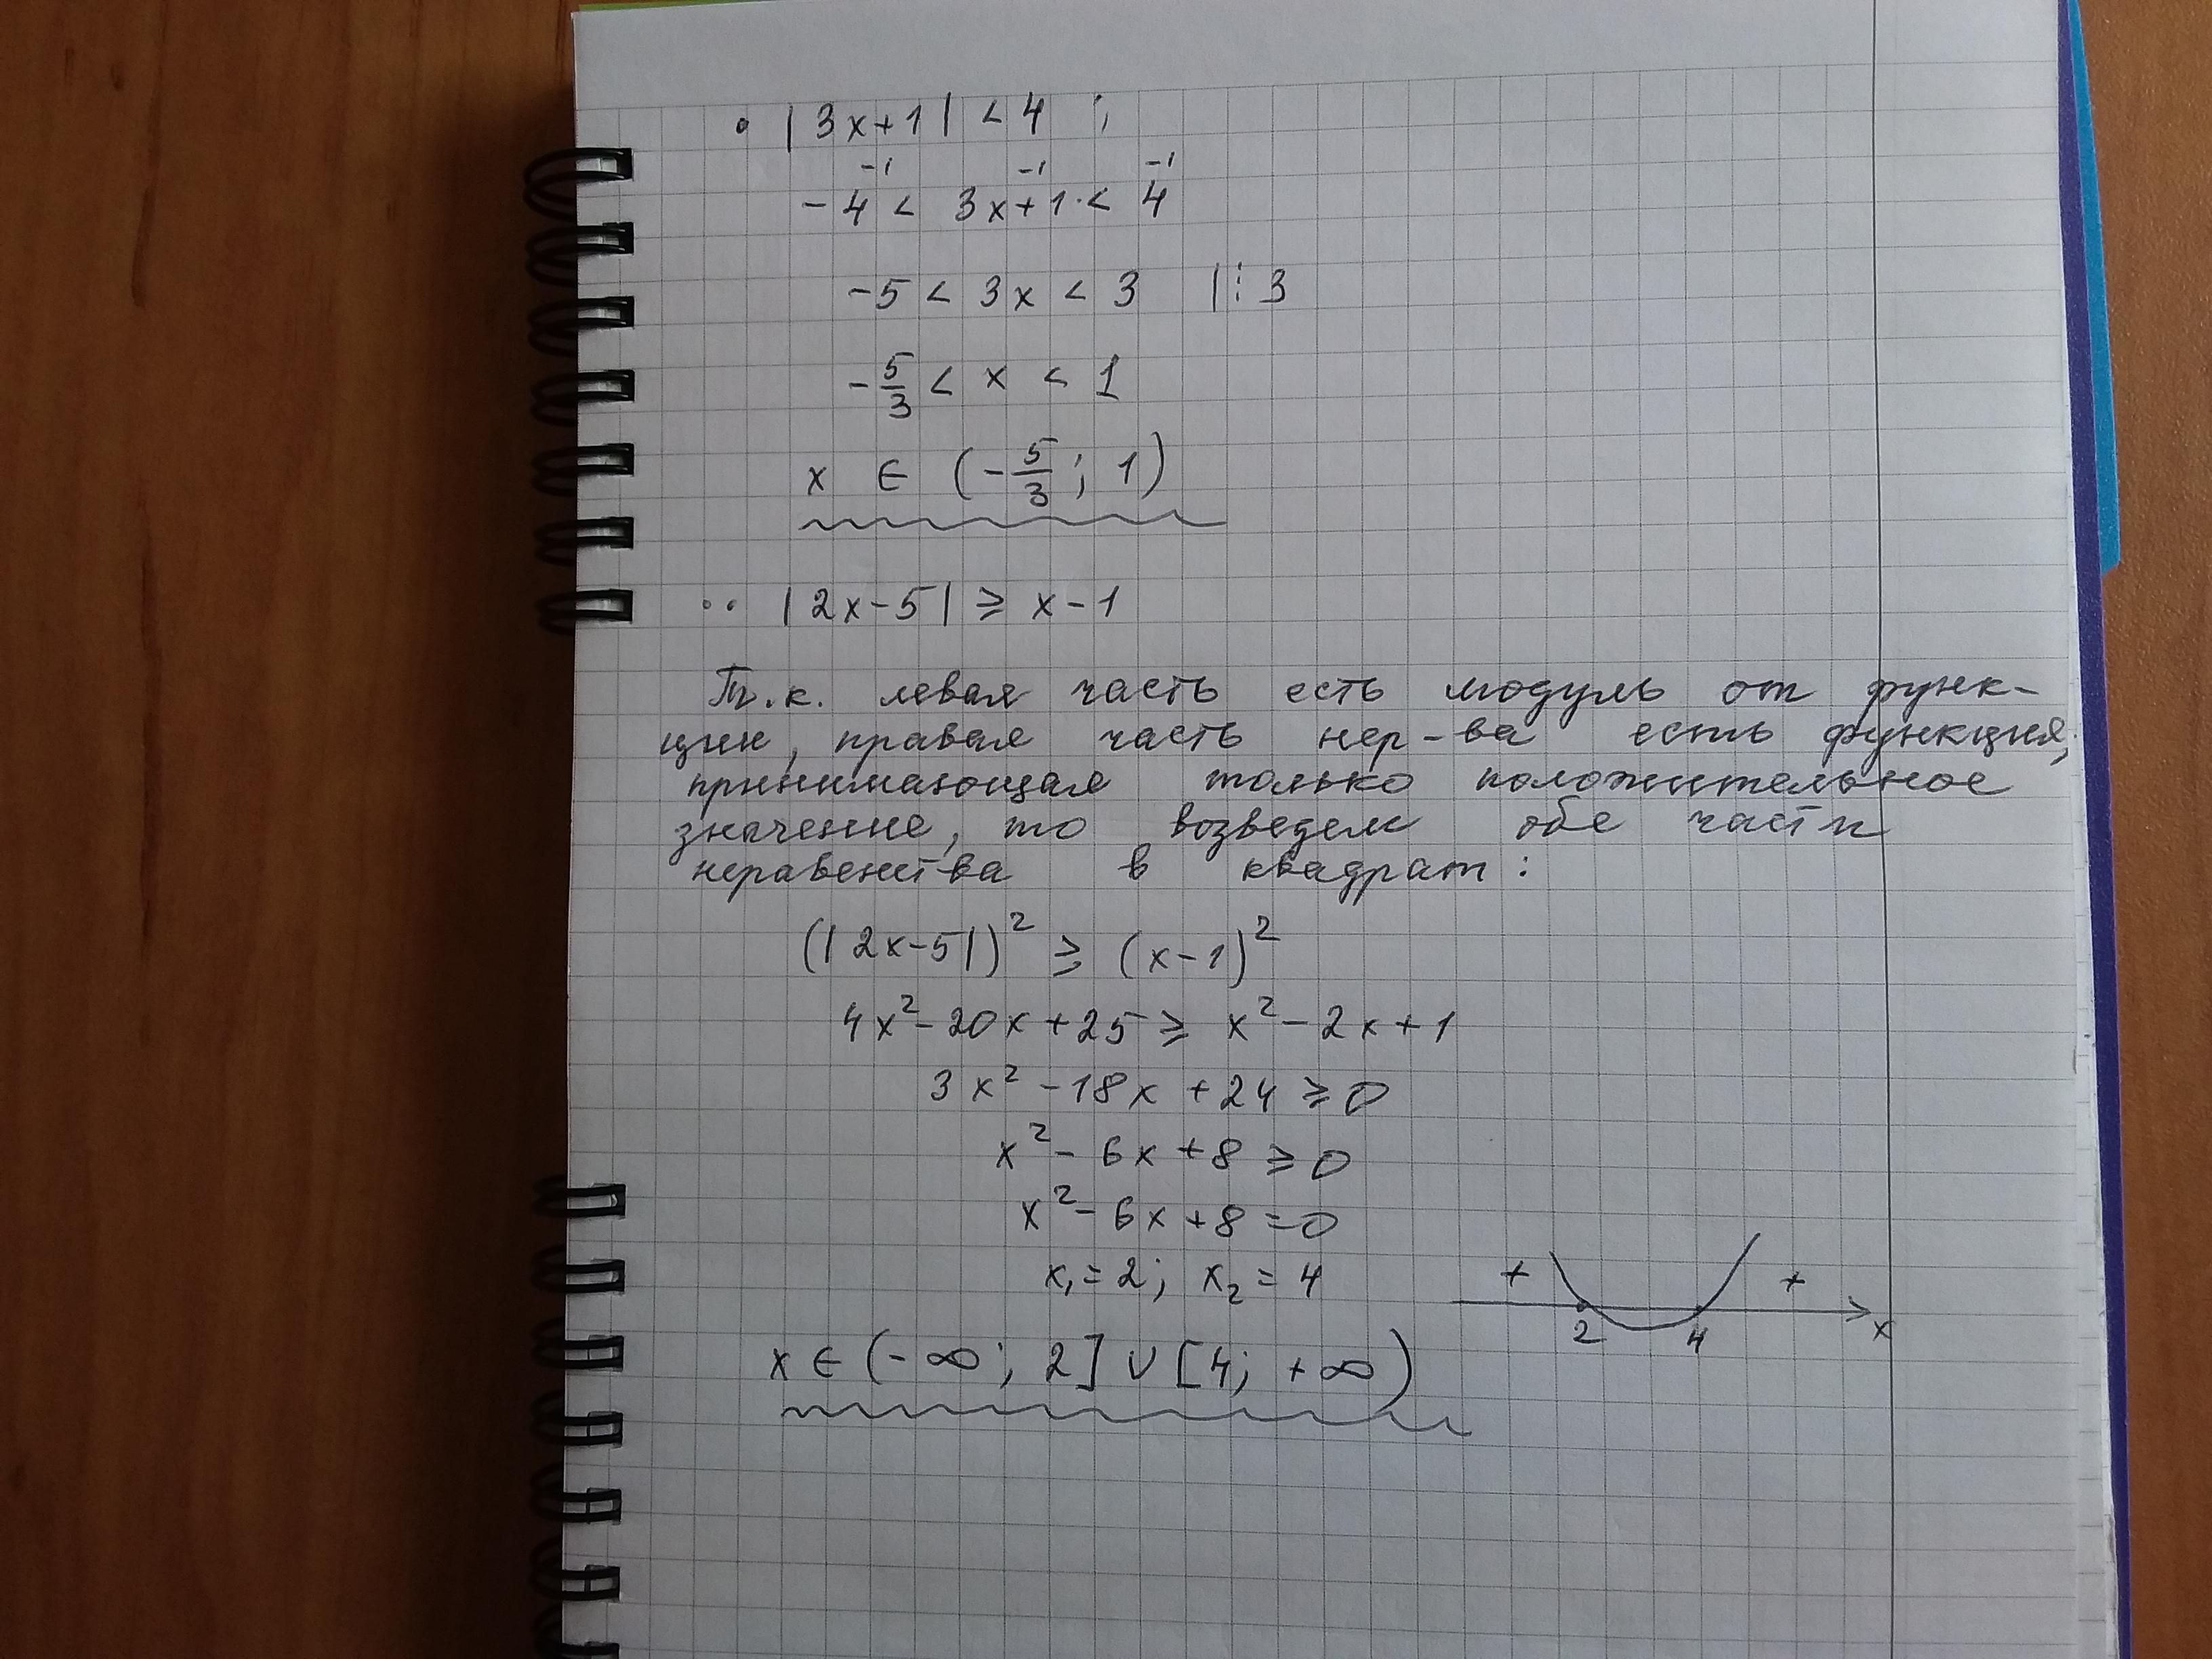 • |3x+1| < 4 ;
-1 -1 -1
-4 < 3x+1 < 4
-5 < 3x < 3 |:3
-5/3 < x < 1
x ∈ (-5/3; 1)
•• |2x-5| ≥ x-1
Т.к. левая часть есть модуль от функ-
ции, правая часть нер-ва есть функция,
принимающая только положительное
значение, то возведем обе части
неравенства в квадрат:
(|2x-5|)² ≥ (x-1)²
4x²-20x+25 ≥ x²-2x+1
3x²-18x+24 ≥ 0
x²-6x+8 ≥ 0
x²-6x+8=0
x₁=2; x₂=4
+ +
2 4 x
x ∈ (-∞; 2] ∪ [4; +∞)